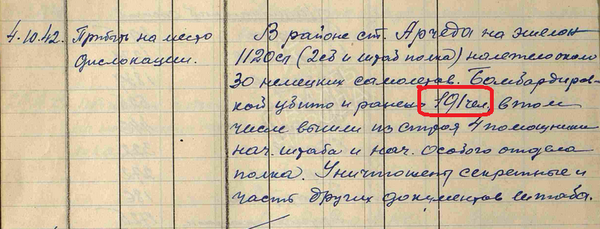 4.10.42. Прибыть на место
дислокации.
В районе ст. Арчеда на эшелон
1120сп (2сб и штаб полка) налетело около
30 немецких самолетов. Бомбардиров-
кой убито и ранено 191 чел, в том
числе вышли из строя 4 помощника
нач. штаба и нач. особого отдела
полка. Уничтожены секретные и
часть других документов штаба.